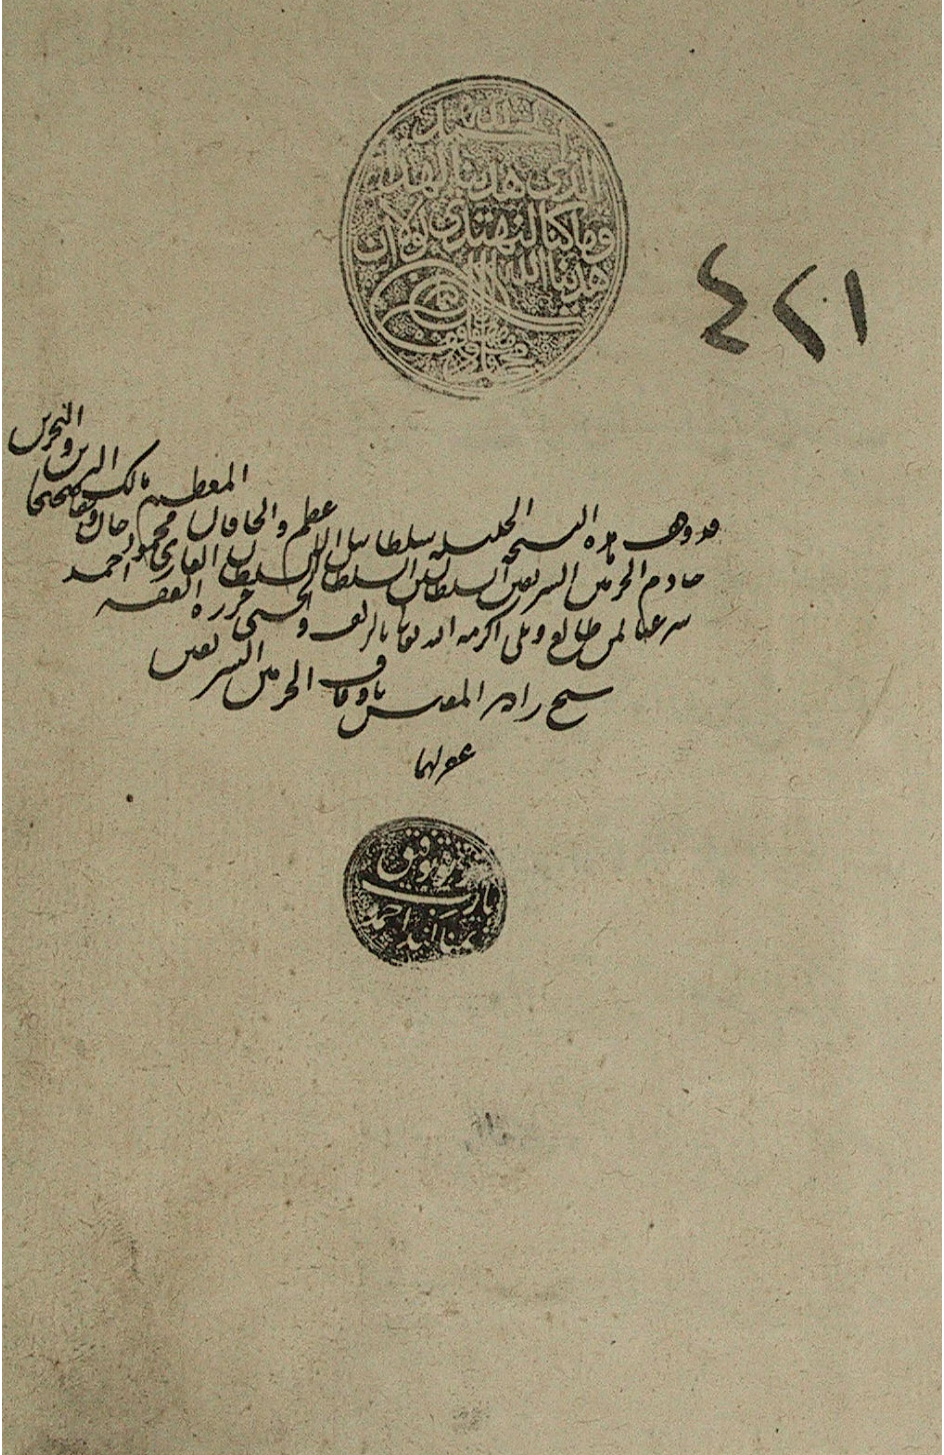 الحمد لله
الذي هدينا لهذا
وما كنا لنهتدي لولا أن
هدينا الله
٤٢١
قد وقف هذه النسخة الجليلة سلطاننا الأعظم والخاقان المعظم مالك البرين والبحرين
خادم الحرمين الشريفين السلطان بن السلطان السلطان الغازي محمود خان وقفا صحيحا
شرعيا لمن طالع وأكرمه الله تعالى بالزلفى والحسنى حرره الفقير أحمد
شيخ زاده المفتش بأوقاف الحرمين الشريفين
غفر لهما
توفيق
يا رب
احمد